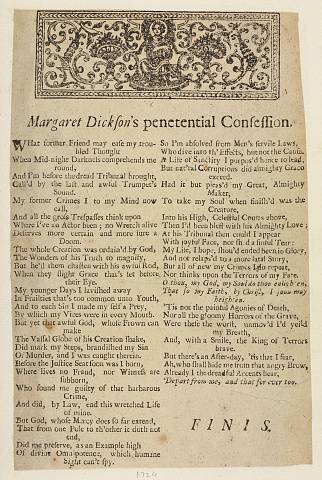 Margaret Dickson's penetential Confession.
WHat former Friend may ease my trou-
bled Thought
When Mid-night Darkness comprehends me
round,
And I'm before the dread Tribunal brought,
Call'd by the last and awful Trumpet's
Sound.
My former Crimes I to my Mind now
call,
And all the gross Trespasses think upon
Where I've an Actor been; no Wretch at all
Deserves more certain and more sure a
Doom.
The whole Creation was ordain'd by God,
The Wonders of his Truth to magnify,
But he'll them chasten with his awful Rod,
When they slight Grace that's set before
their Eye.
My younger Days I lavished away
In Frailties that's too common unto Youth,
And to each Sin I made my self a Prey,
By which my Vices were in every Mouth.
But yet that awful God, whose Frown can
make
The Vassal Globe of his Creation shake,
Did mark my Steps, brandished my Sin
Of Murder, and I was caught therein.
Before the Justice Seat soon was I born,
Where lives no Fraud, nor Witness are
suborn,
Who found me guilty of that barbarous
Crime,
And did, by Law, end this wretched Life
of mine.
But God, whose Mercy does so far extend,
That from one Pole to th'other is doth not
end,
Did me preserve, as an Example high
Of divine Omnipotence, which humane
Sight can't spy.
So I'm absolved from Men's servile Laws,
Who dive into th' Effects, but not the Cause.
A Life of Sanctity I purpos'd hance to lead,
But natural Corruptions did almighty Grace
exceed.
Had it but pleas'd my Great, Almighty
Maker,
To take my Soul when finish'd was the
Creature,
Into his High, Celestial Courts above,
Then I'd been blest with his Almighty Love;
At his Tribunal then could I appear
With joyful Face, nor find a sinful Tear:
My Life, I hope, should ended been in Glory,
And not relaps'd to a more fatal Story,
But all of new my Crimes I do repeat,
Nor thinks upon the Terrors of my Fate.
O thou, my God, my Soul do thou enlighten,
That so my Faith by Christ, I you may
heighten.
'Tis not the painful Agonies of Death,
Nor all the gloomy Horrors of the Grave,
Were these the worst, unmov'd I'd yeild
my Breath,
And, with a Smile, the King of Terrors
brave.
But there's an After-day, 'tis that I fear,
Ah, who shall hide me from that angry Brow,
Already I the dreadful Accents hear,
Depart from me, and that for ever too.
FINIS.
1724